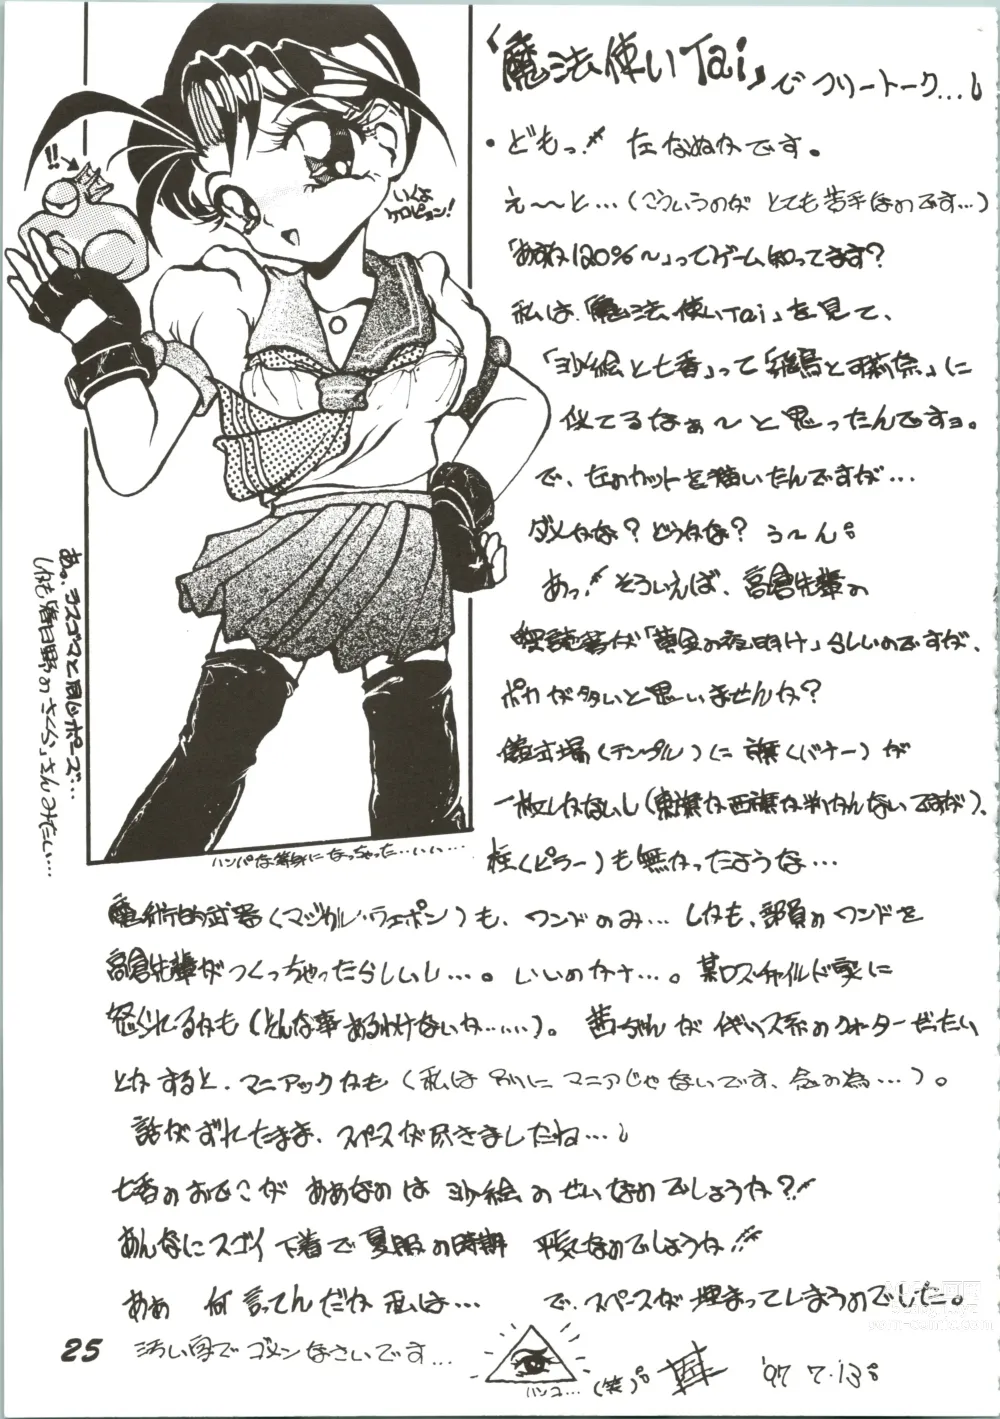 「魔法使いTai」でフリートーク…!
・どもっ!! 左なぬかです。
え〜と…(こういうのが とても苦手なのです…)
「あすか120%〜」ってゲーム知ってます?
私は、「魔法使いTai」を見て、
「沙絵と七香」って「飛鳥と可莉奈」に
似てるなぁ〜と思ったんですョ。
で、左のカットを描いたんですが…
ダメかな?どうかな? う〜ん。
あっ!! そういえば、高倉先輩の
解説書が「黄金の夜明け」らしいのですが、
ポカが多いと思いませんか?
儀式場(テンプル)に旗(バナー)が
一枚しかないし(東旗か西旗か判かんないですが)、
柱(ピラー)も無かったような…
魔術的武器(マジカル・ウェポン)も、ワンドのみ… しかも、部員のワンドを
高倉先輩がつくっちゃったらしいし…。いいのかナ…。某ロスチャイルド家に
怒られるかも(そんな事あるわけないか……)。 茜ちゃんがイギリス系のクォーターだったい
とかすると、マニアックかも(私は別にマニアじゃないです、念の為…)。
話がずれたまま、スペースが尽きましたね…!
七香のおでこが ああなのは沙絵のせいなのでしょうか?!!
あんなにスゴイ下着で夏服の時期 平気なのでしょうか!!
ああ 何言ってんだか私は… で、スペースが埋まってしまうのでした。
汚い字でゴメンなさいです…
ハンコ…
(笑)。
'97 7.13。
25
!!
いくよ
ケロピョン!
あっ、ラスゴマと同じポーズ…
しかも春日野の「さくら」さんみたい…
ハンパな等身になっちゃった…いい…